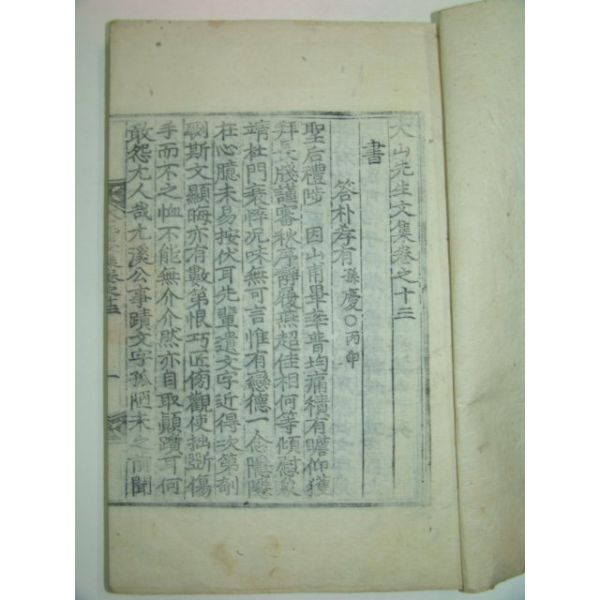 大山先生文集卷之十三
書
答朴孝有孫慶○丙申
聖后禮陟 因山甫畢率普均痛積有瞻仰獲
拜長牋謹審秋序靜履燕超佳相何等傾慰象
靖杜門衰悴况味無可言惟有戀德一念隱
在心臆未易按伏耳先輩遺文字近得次第剞
劂斯文顯晦亦有數第恨巧匠傍觀使拙斲傷
手而不之恤不能無介介然亦自取顚躓耳何
敢怨尤人哉尤溪公事蹟文字孤陋未之前聞
一